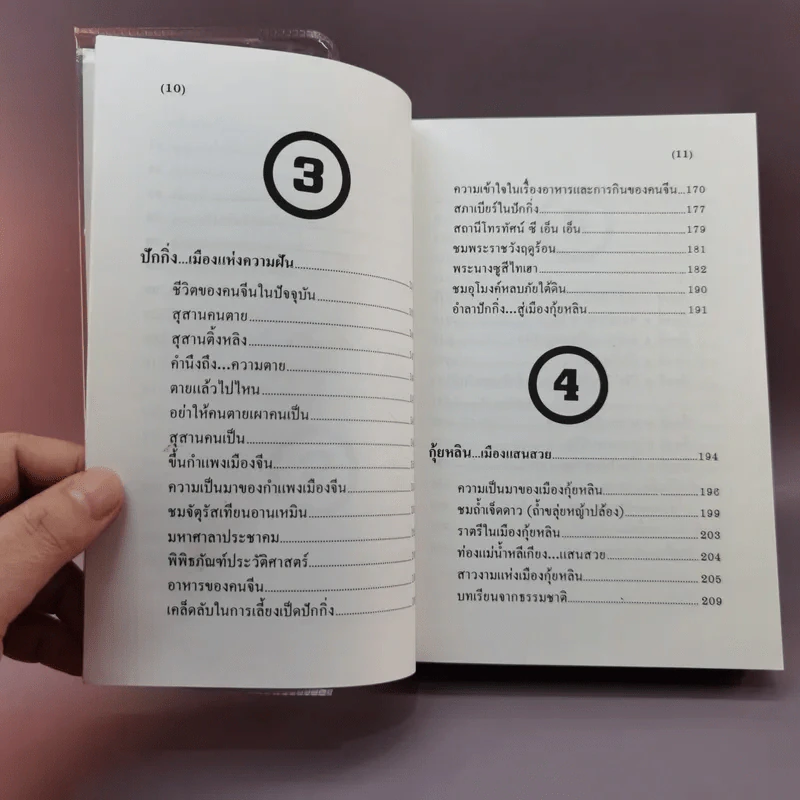 (10)
3
ปักกิ่ง...เมืองแห่งความฝัน
ชีวิตของคนจีนในปัจจุบัน
สุสานคนตาย
สุสานติ้งหลิง
คำนึงถึง...ความตาย
ตายแล้วไปไหน
อย่าให้คนตายเผาคนเป็น
สุสานคนเป็น
ขึ้นกำแพงเมืองจีน
ความเป็นมาของกำแพงเมืองจีน
ชมจัตุรัสเทียนอานเหมิน
มหาศาลาประชาคม
พิพิธภัณฑ์ประวัติศาสตร์
อาหารของคนจีน
เคล็ดลับในการเลี้ยงเป็ดปักกิ่ง
(11)
ความเข้าใจในเรื่องอาหารและการกินของคนจีน...170
สภาเบียร์ในปักกิ่ง...177
สถานีโทรทัศน์ ซี เอ็น เอ็น...179
ชมพระราชวังฤดูร้อน...181
พระนางซูสีไทเฮา...182
ชมอุโมงค์หลบภัยใต้ดิน...190
อำลาปักกิ่ง...สู่เมืองกุ้ยหลิน...191
4
กุ้ยหลิน...เมืองแสนสวย...194
ความเป็นมาของเมืองกุ้ยหลิน...196
ชมถ้ำเจ็ดดาว (ถ้ำขลุ่ยหญ้าปล้อง)...199
ราตรีในเมืองกุ้ยหลิน...203
ท่องแม่น้ำหลีเกียง...แสนสวย...204
สาวงามแห่งเมืองกุ้ยหลิน...205
บทเรียนจากธรรมชาติ...209